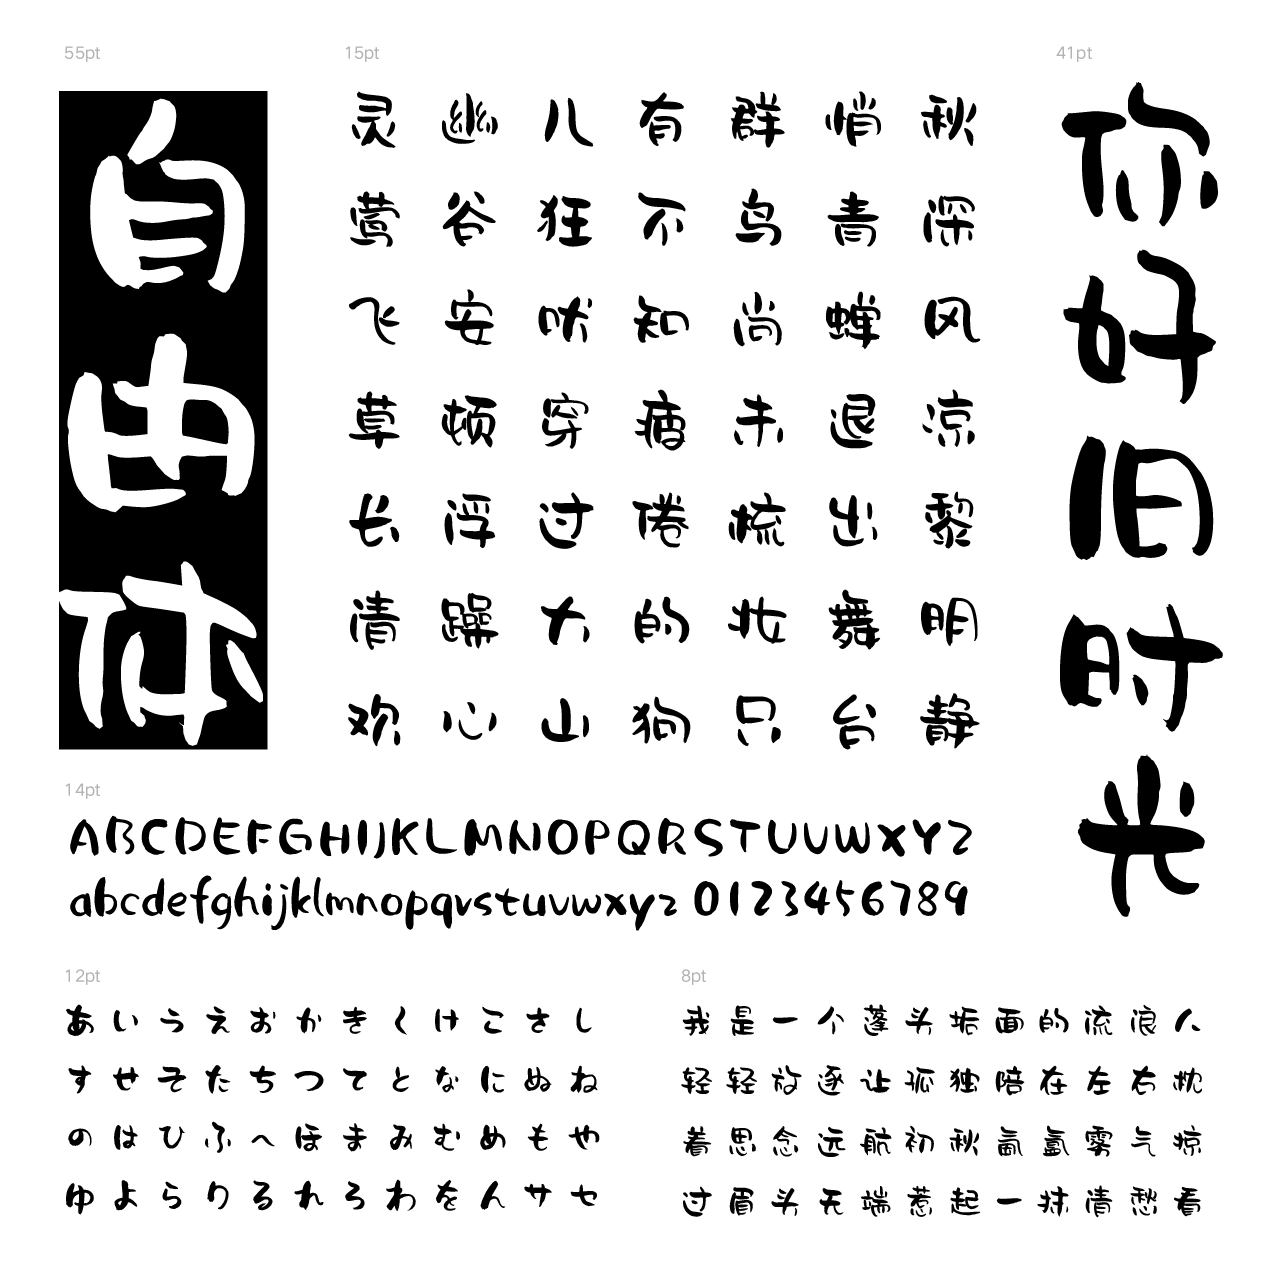 55pt
自由体
15pt
秋深风凉黎明静
悄青蝉退出舞台
群鸟尚未梳妆只
有不知疲倦的狗
儿狂吠穿过大山
幽谷安顿浮躁心
灵莺飞草长清欢
41pt
你好旧时光
14pt
ABCDEFGHIJKLMNOPQRSTUVWXYZ
abcdefghijklmnopqrstuvwxyz 0123456789
12pt
あいうえおかきくけこさし
すせそたちつてとなにぬね
のはひふへほまみむめもや
ゆよらりるれろわをんサセ
8pt
我是一个蓬头垢面的流浪人
轻轻放逐让孤独陪在左右枕
着思念远航初秋氤氲雾气掠
过眉头无端惹起一抹清愁看